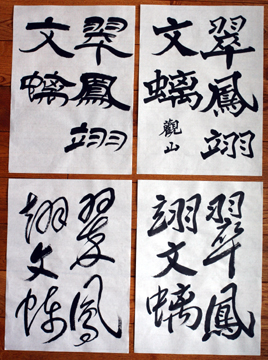 翠鳳翊
文螭
觀山
翠鳳翊
文螭
翠鳳
翊文螭
翠鳳
翊文螭